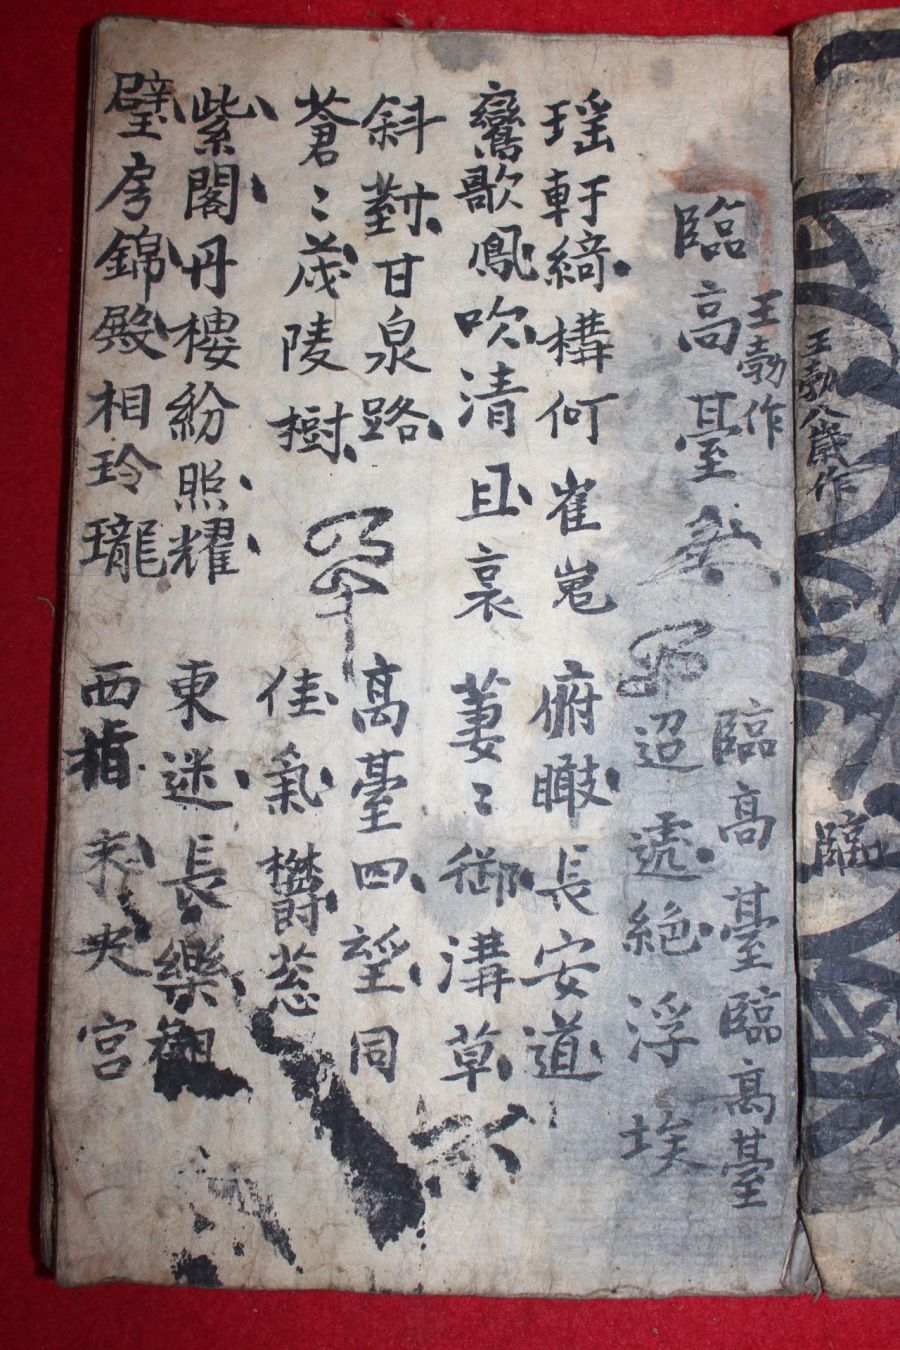 王勃八歲作
臨
臨高臺
王勃作
臨高臺臨高臺
迢遞絶浮埃
瑶軒綺構何崔嵬
俯瞰長安道
鸞歌鳳吹清且哀
萋〻御溝草
斜對甘泉路
高臺四望同
蒼〻茂陵樹
佳氣欝葱
紫閣丹樓紛照耀
東迷長樂觀
璧房錦殿相玲瓏
西指未央宮